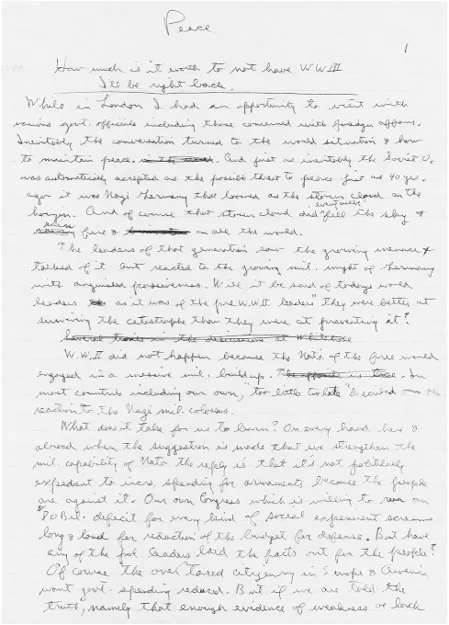 Peace
1
How much is it worth to not have WW III
I'll be right back.
While in London I had an opportunity to visit with
various govt. officials including those concerned with foreign affairs.
Inevitably the conversation turned to the world situation & how
to maintain peace. And just as inevitably the Soviet U.
was automatically accepted as the possible threat to peace just as 40 yrs.
ago it was Nazi Germany that loomed as the storm cloud on the
horizon. And of course that storm cloud did eventually fill the sky &
rain fire & on all the world.
The leaders of that generation saw the growing menace &
talked of it but reacted to the growing mil. might of Germany
with anguished passiveness. Will it be said of todays world
leaders as it was of the pre W.W.II leaders "they were better at
surviving the catastrophe than they were at preventing it"?
W.W.II did not happen because the Nats. of the free world
engaged in a massive mil. buildup. In
most countries including our own, "too little too late" described the
reaction to the Nazi mil. colossus.
What does it take for us to learn? On every hand here &
abroad when the suggestion is made that we strengthen the
mil. capability of Nato the reply is that it's not politically
expedient to incrs. spending for armaments because the people
are against it. Our own Congress which is willing to run an
80 Bil. deficit for every kind of social experiment screams
long & loud for reduction of the budget for defense. But have
any of the leaders laid the facts out for the people?
Of course the over taxed citizenry in Europe & America
want govt. spending reduced. But if we are told the
truth, namely that enough evidence of weakness or lack